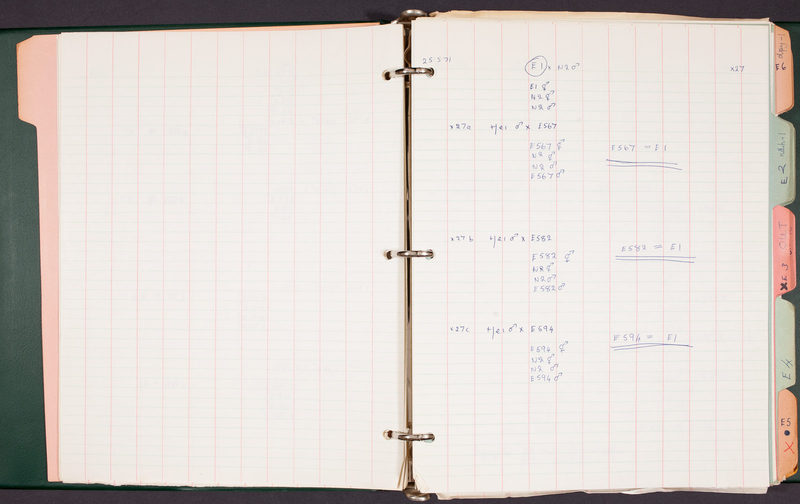 25.5.71
E1 x N2 ♂ x27
E1 ⚥
N2 ⚥
N2 ♂
x27a +/e1 ♂ x E567
E567 ⚥
N2 ⚥
N2 ♂
E567 ♂
E567 = E1
x27b +/e1 ♂ x E582
E582 ⚥
N2 ⚥
N2 ♂
E582 ♂
E582 = E1
x27c +/e1 ♂ x E594
E594 ⚥
N2 ⚥
N2 ♂
E594 ♂
E594 = E1
E6 dpy-1
E2
XE3
E4
E5
X